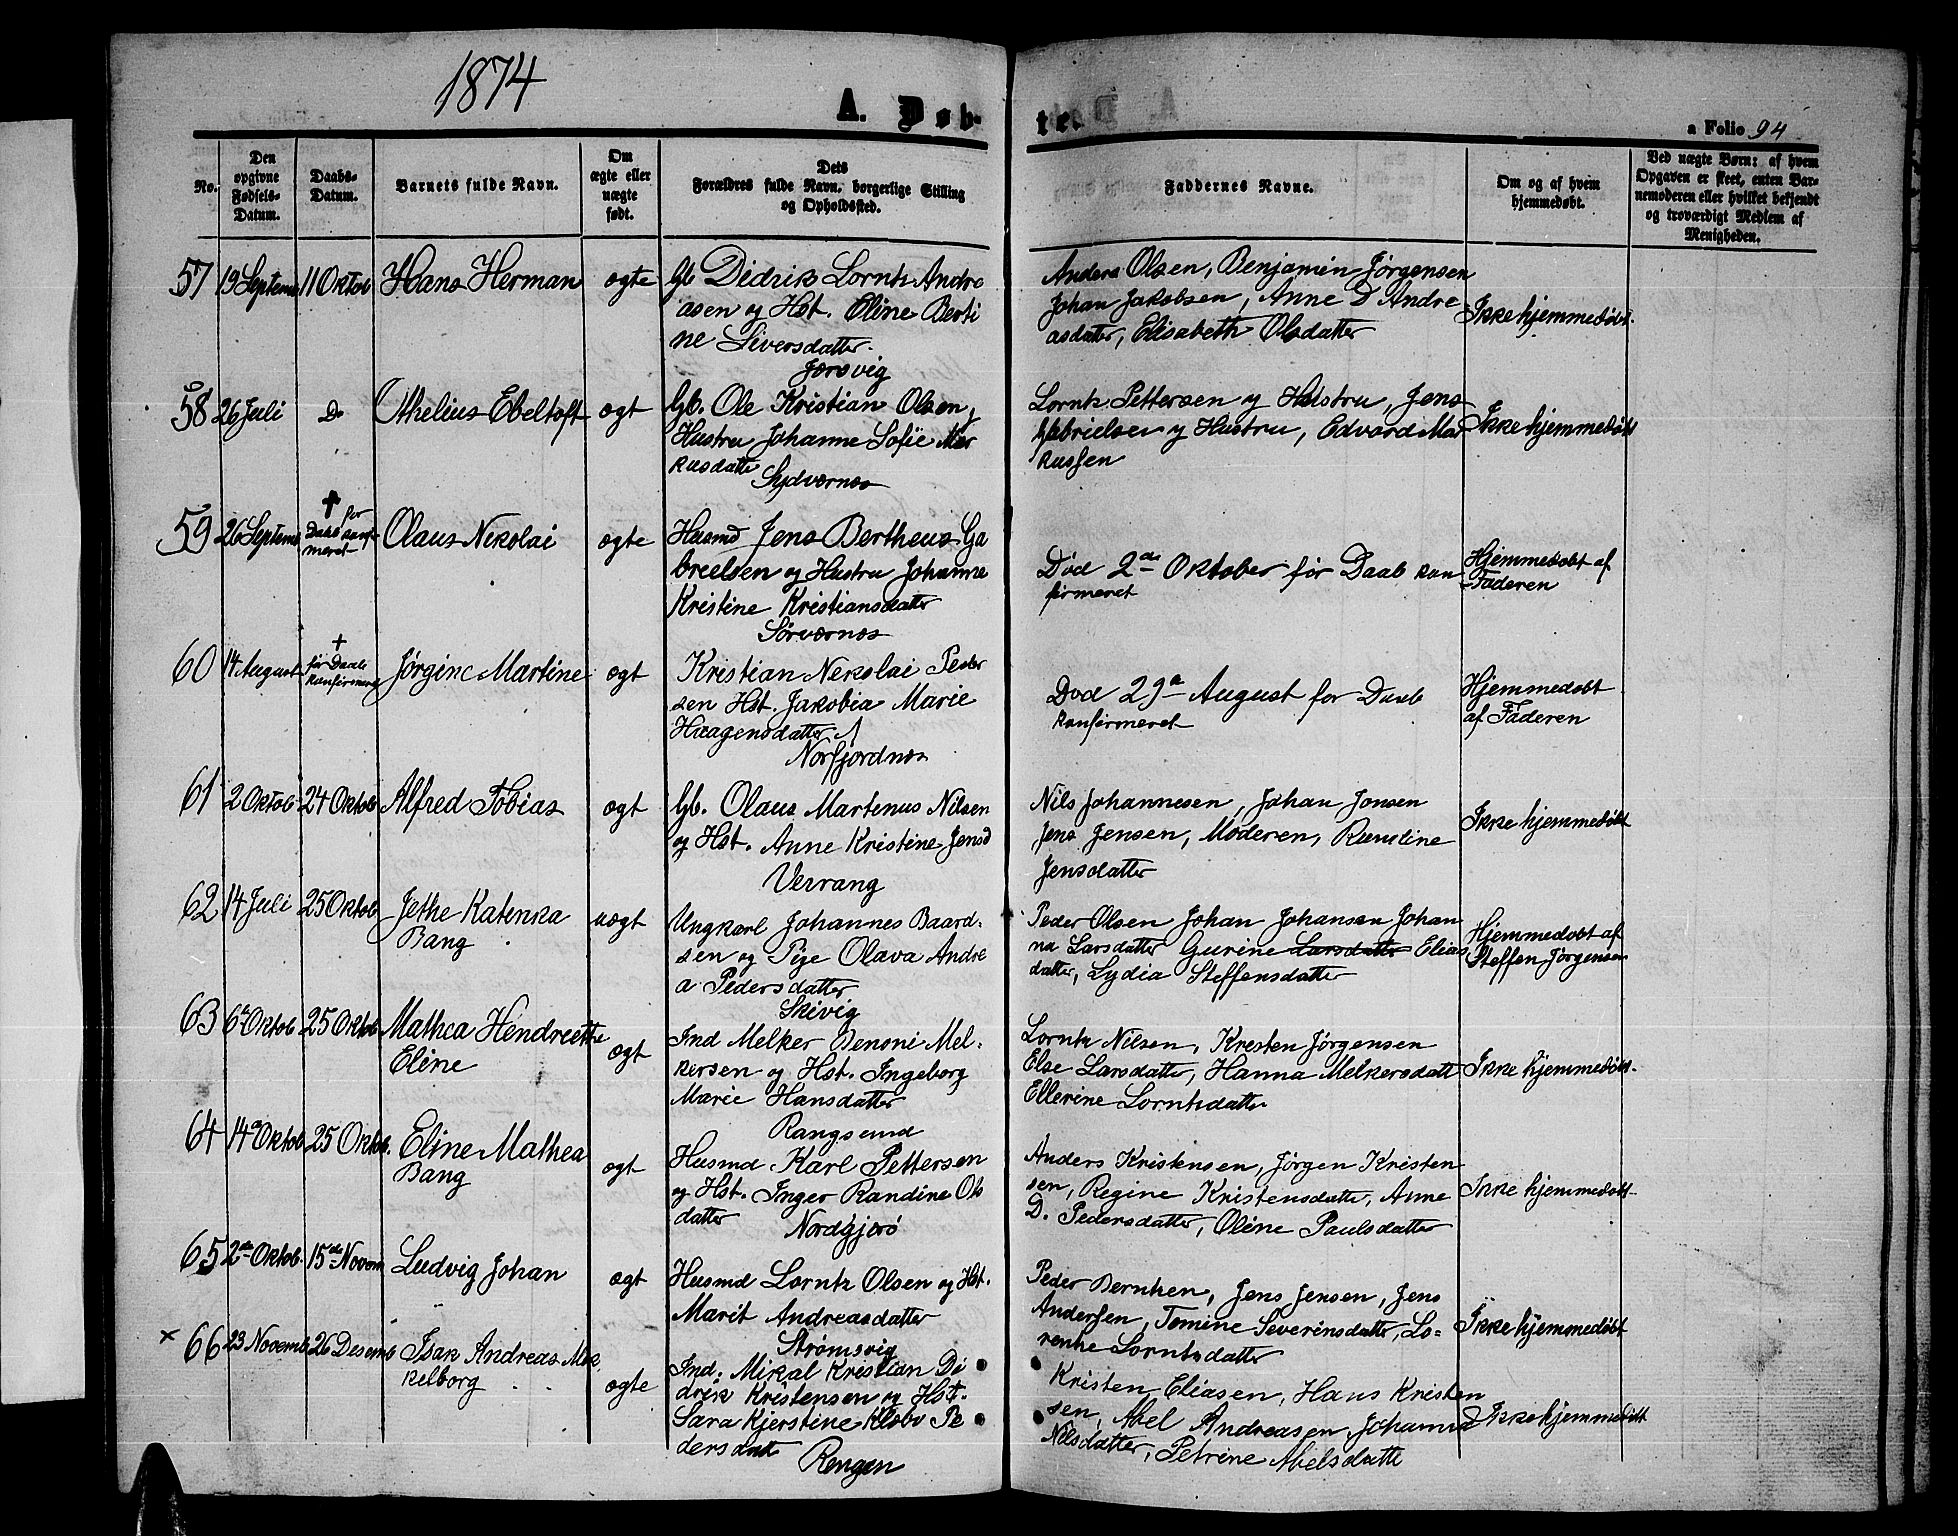 1874
A. Døb-
te.
a Folio 94.
No.
Den opgivne Fødsels-Datum.
Daabs-Datum.
Barnets fulde Navn.
Om ægte eller uægte født.
Dets Forældres fulde Navn, borgerlige Stilling og Opholdssted.
Faddernes Navne.
Om og af hvem hjemmedøbt.
Ved uægte Børn: af hvem Opgaven er skeet, enten Barnemoderen eller hvilket bekjendt og troværdigt Medlem af Menigheden.
57 19 Septemb 11 Oktob Hans Herman ægte
Gb Didrik Lornts Andre
asen og Hst. Oline Berti
ne Siversdatter.
Jørsvig
Anders Olsen, Benjamin Jørgensen
Johan Jakobsen, Anne D Andre
asdatter, Elisabeth Olsdatter
Ikke hjemmedøbt.
58 26 Juli Do Othelius Ebeltoft ægt
Gb. Ole Kristian Olsen,
Hustru Johanne Sofie Mar
kusdatter
Sydværnes
Lornts Pettersen og Hustru, Jens
Gabrielsen og Hustru, Edvard Mar
kussen
Ikke hjemmedøbt
59 26 Septemb † før
Daabs konfir
meret
Olaus Nikolai ægte
Husmd Jens Bertheus Ga
brielsen og Hustru Johanne
Kristine Kristiansdatter
Sørværnes
Død 2den Oktober før Daab kon
firmeret
Hjemmedøbt af
Faderen
60 14 August †
før Daab
konfirmeret
Jørgine Martine ægt
Kristian Nikolai Peder
sen Hst. Jakobia Marie
Haagensdatter
Norfjordnes
Død 29de August før Daab
konfirmeret
Hjemmedøbt
af Faderen
61 2 Oktob 24 Oktob Alfred Tobias ægt
Gb. Olaus Martinus Nilsen
og Hst. Anne Kristine Jensd
Verrang
Nils Johannesen, Johan Jonsen
Jens Jensen, Moderen,
Jensdatter
Ikke hjemmedøbt
62 14 Juli 25 Oktob Jethe Katinka
Bang
uægt
Ungkarl Johannes Baard-
sen og Pige Olava Andre
a Pedersdatter
Skivig
Peder Olsen Johan Johansen Johan
na Larsdatter Gurine Larsdatter Elias
datter, Lydia Steffensdatter
Hjemmedøbt af
Steffen Jørgensen
63 6te Oktob 25 Oktob Mathea Hendriette
Eline
ægt
Ind Melker Benoni Mel-
kersen og Hst. Ingeborg
Marie Hansdatter
Rangsund
Lornts Nilsen, Kristen Jørgensen
Else Larsdatter, Hanna Melkersdatt
Ellerine Lorntsdatter
Ikke hjemmedøbt.
64 14de Oktob 25 Oktob. Eline Mathea
Bang
ægt
Husmd Karl Pettersen
og Hst. Inger Randine Ols
datter
Nordgjerø
Anders Kristensen, Jørgen Kristen
sen, Regine Kristensdatter, Anne
D. Pedersdatter, Oline Paulsdatter
Ikke hjemmedøbt
65 2den Oktob. 15de Novem Ludvig Johan
ægt
Husmd Lornts Olsen og Hst.
Marit Andreasdatter
Strømsvig
Peder Berntsen, Jens Jensen, Jens
Andersen, Tomine Severinsdatter, Lo-
rentse Lorntsdatter
Ikke hjemmedøbt
x 66 23 Novemb 26 Desemb Isak Andreas Mek
kelborg
ægte
Ind. Mikal Kristian Di
drik Kristensen og Hst.
Sara Kjerstine Klæbo Pe
dersdatt
Rengen
Kristen Eliasen, Hans Kristen
sen, Abel Andreasen, Johanna
Nilsdatter, Petrine Abelsdatte
Ikke hjemmedøbt